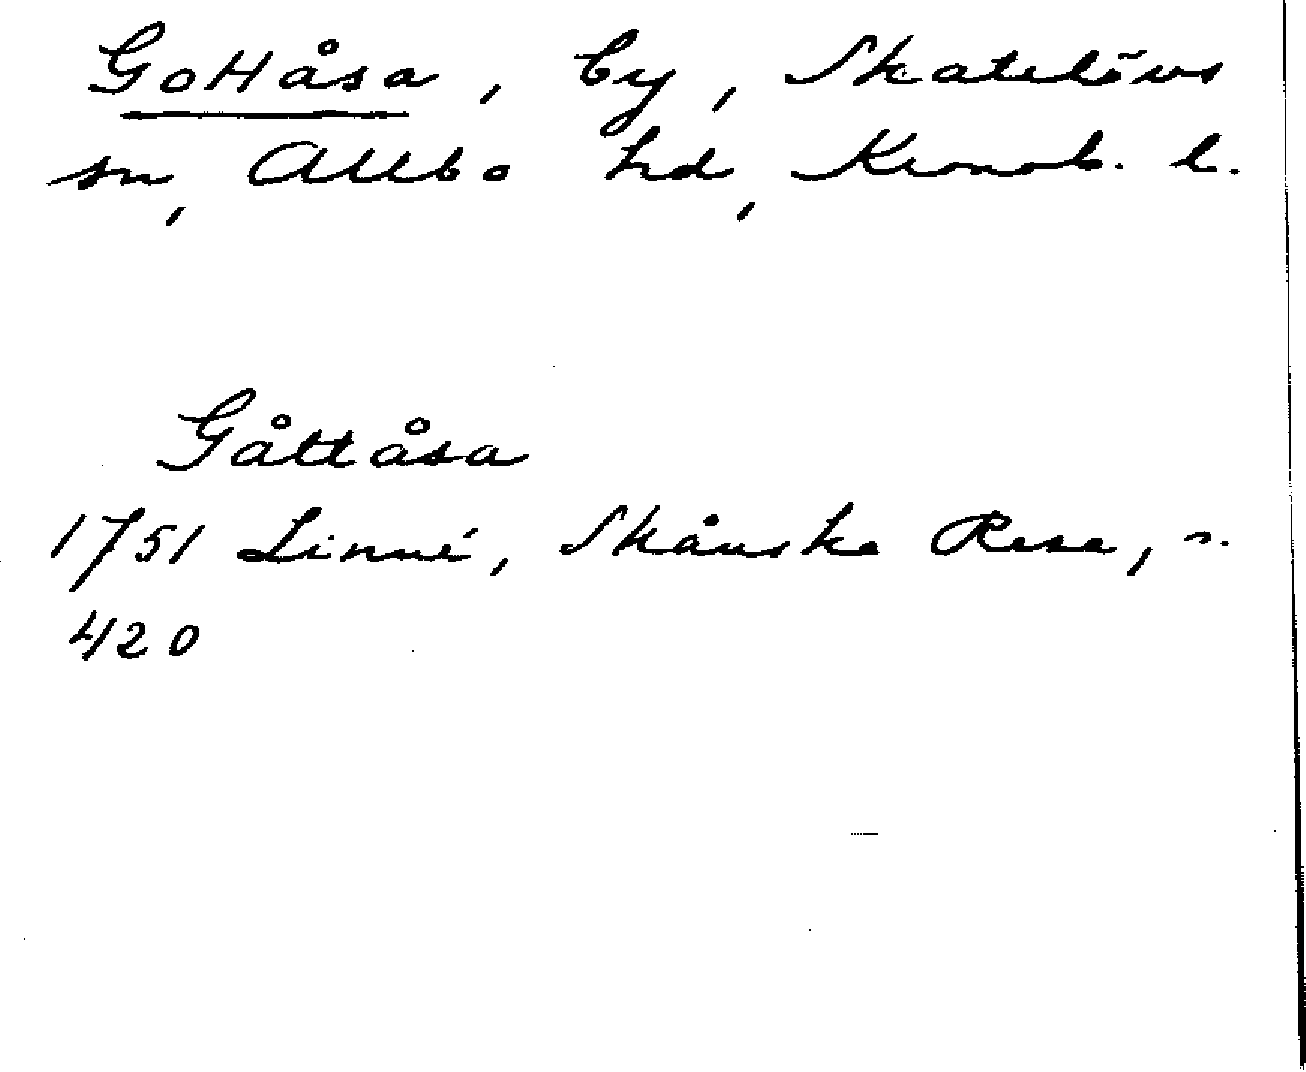 Gottåsa, by, Skatelövs
sn, Allbo hd, Kronob. l.
Gåttåsa
1751 Linné, Skånska Resa, s.
420